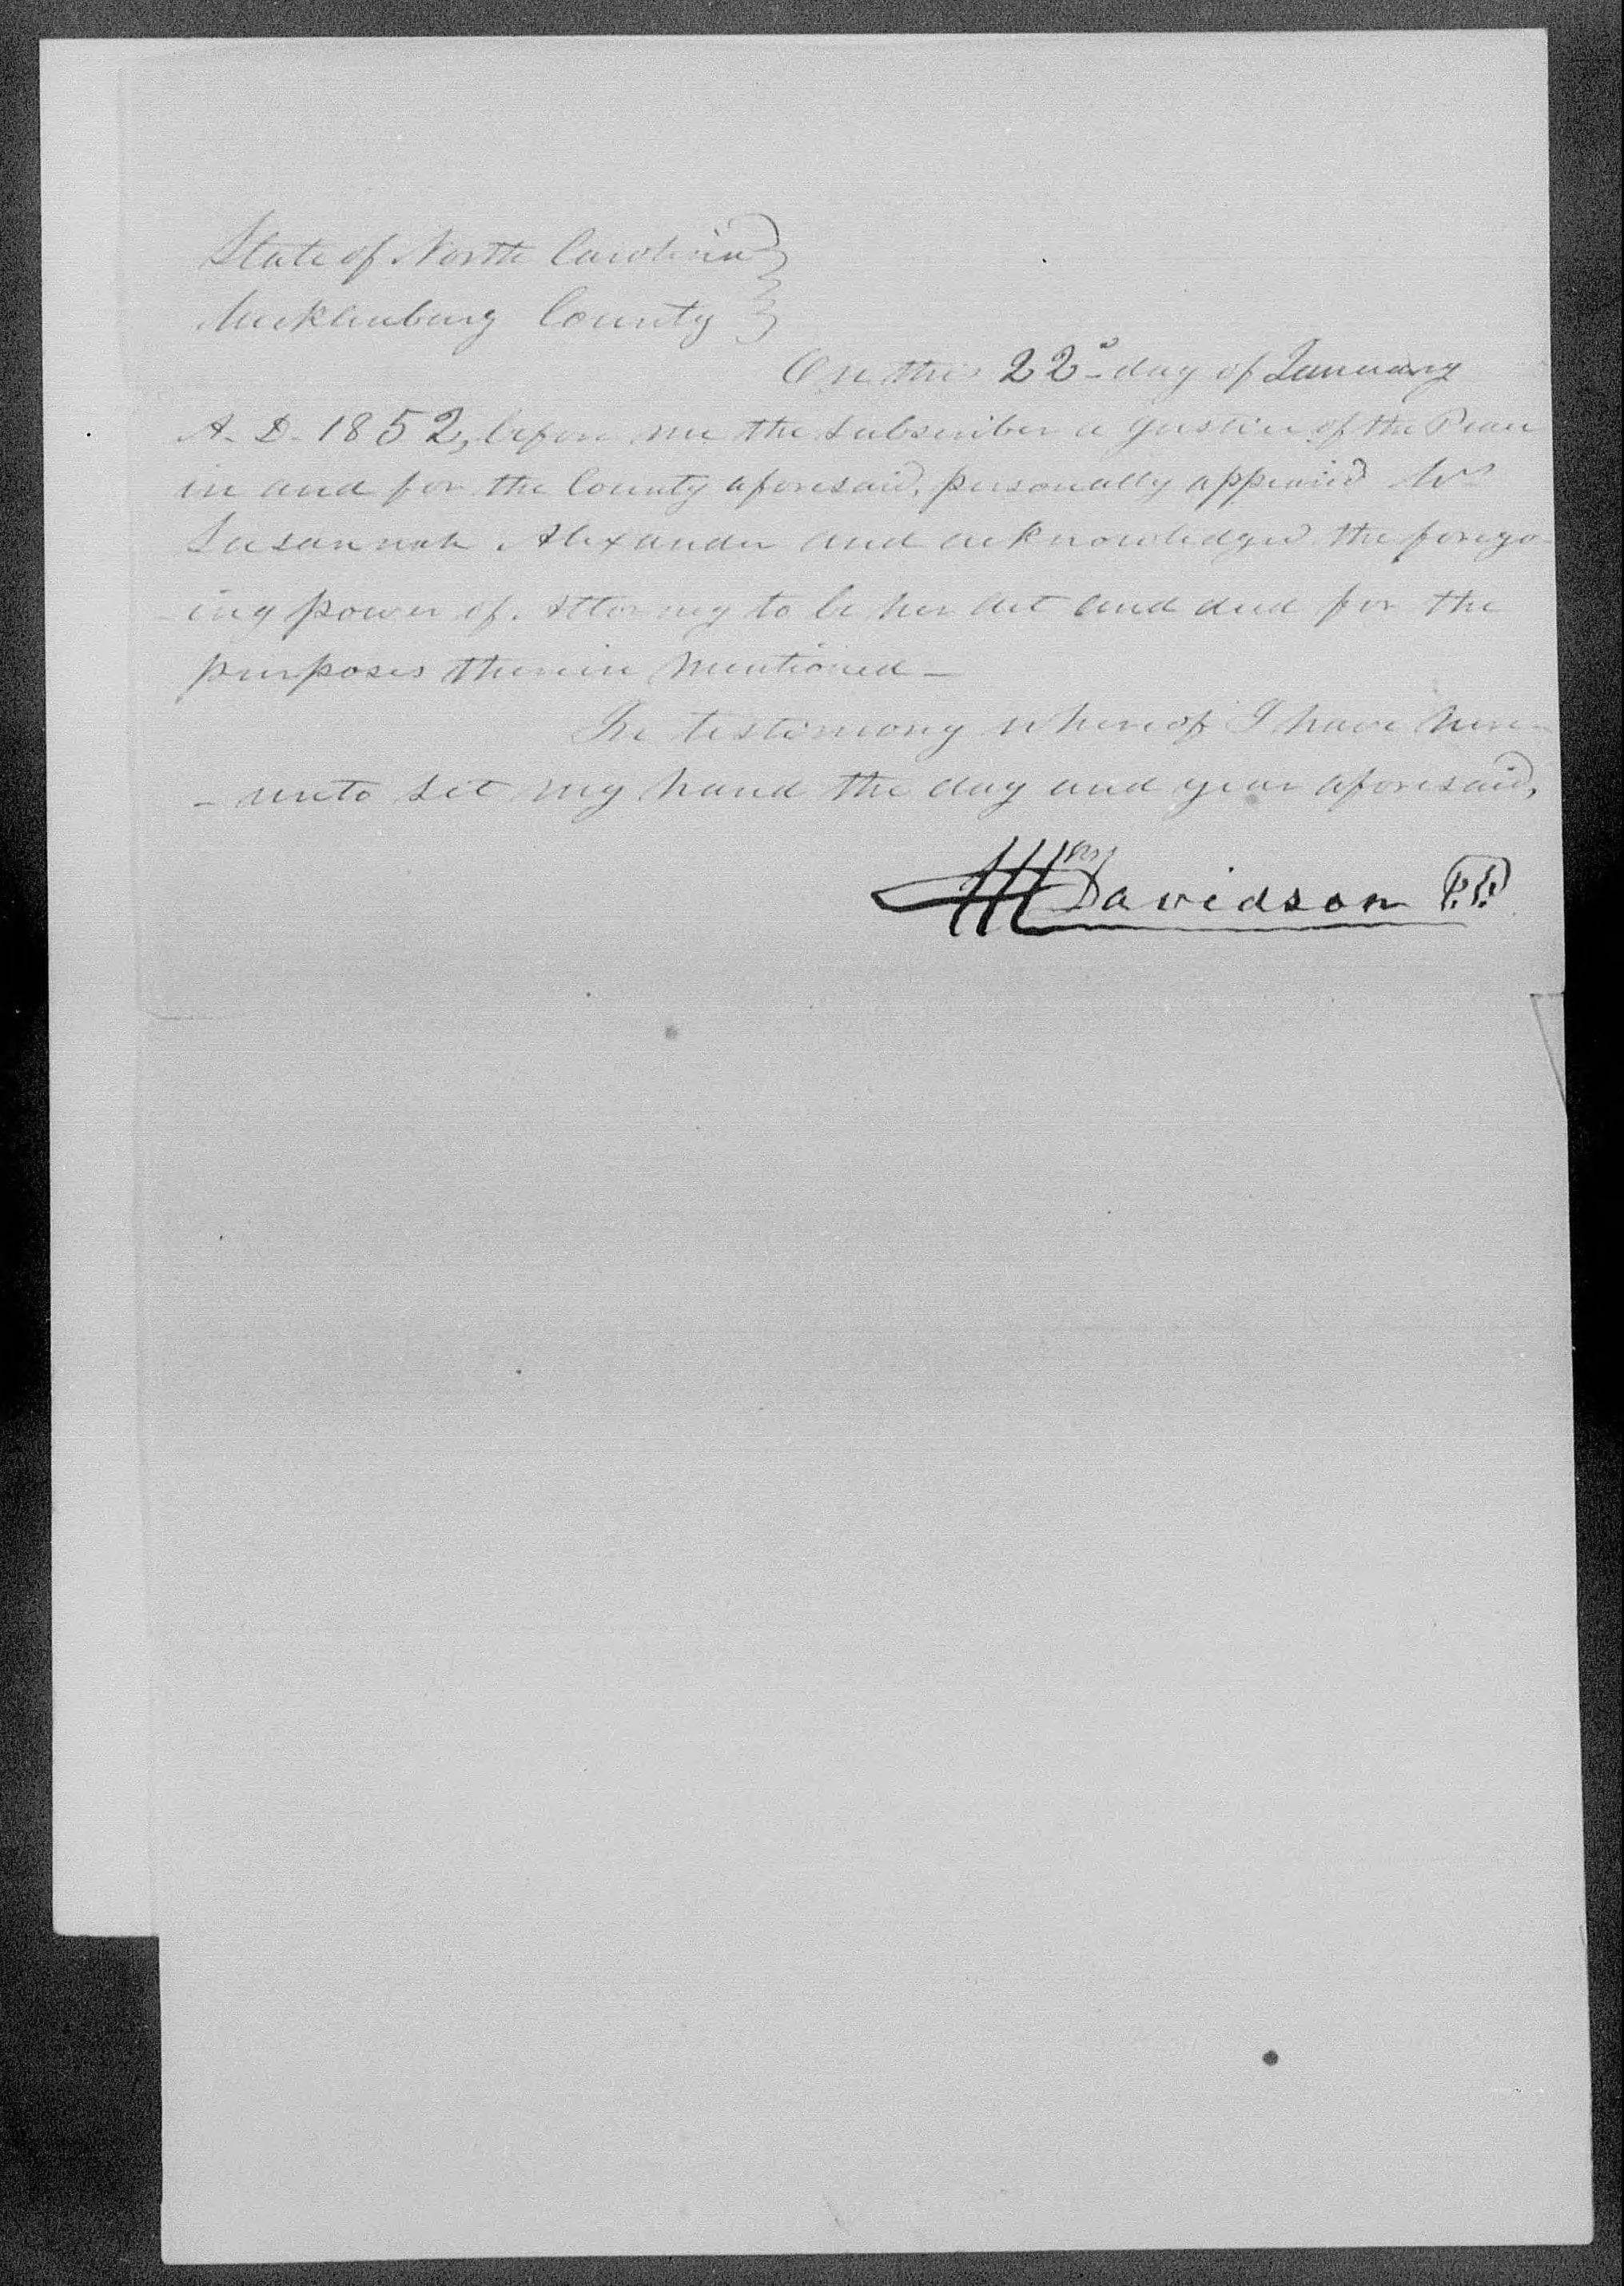 State of North Carolina
Mecklenburg County
On this 22d day of January
A. D. 1852, before me the subscriber a Justice of the Peace
in and for the County aforesaid, personally appeared Mrs
Susannah Alexander and acknowledged the forego-
-ing power of Attorney to be her act and deed for the
purposes therein mentioned -
In testimony whereof I have here-
- unto set my hand the day and year aforesaid,
Davidson